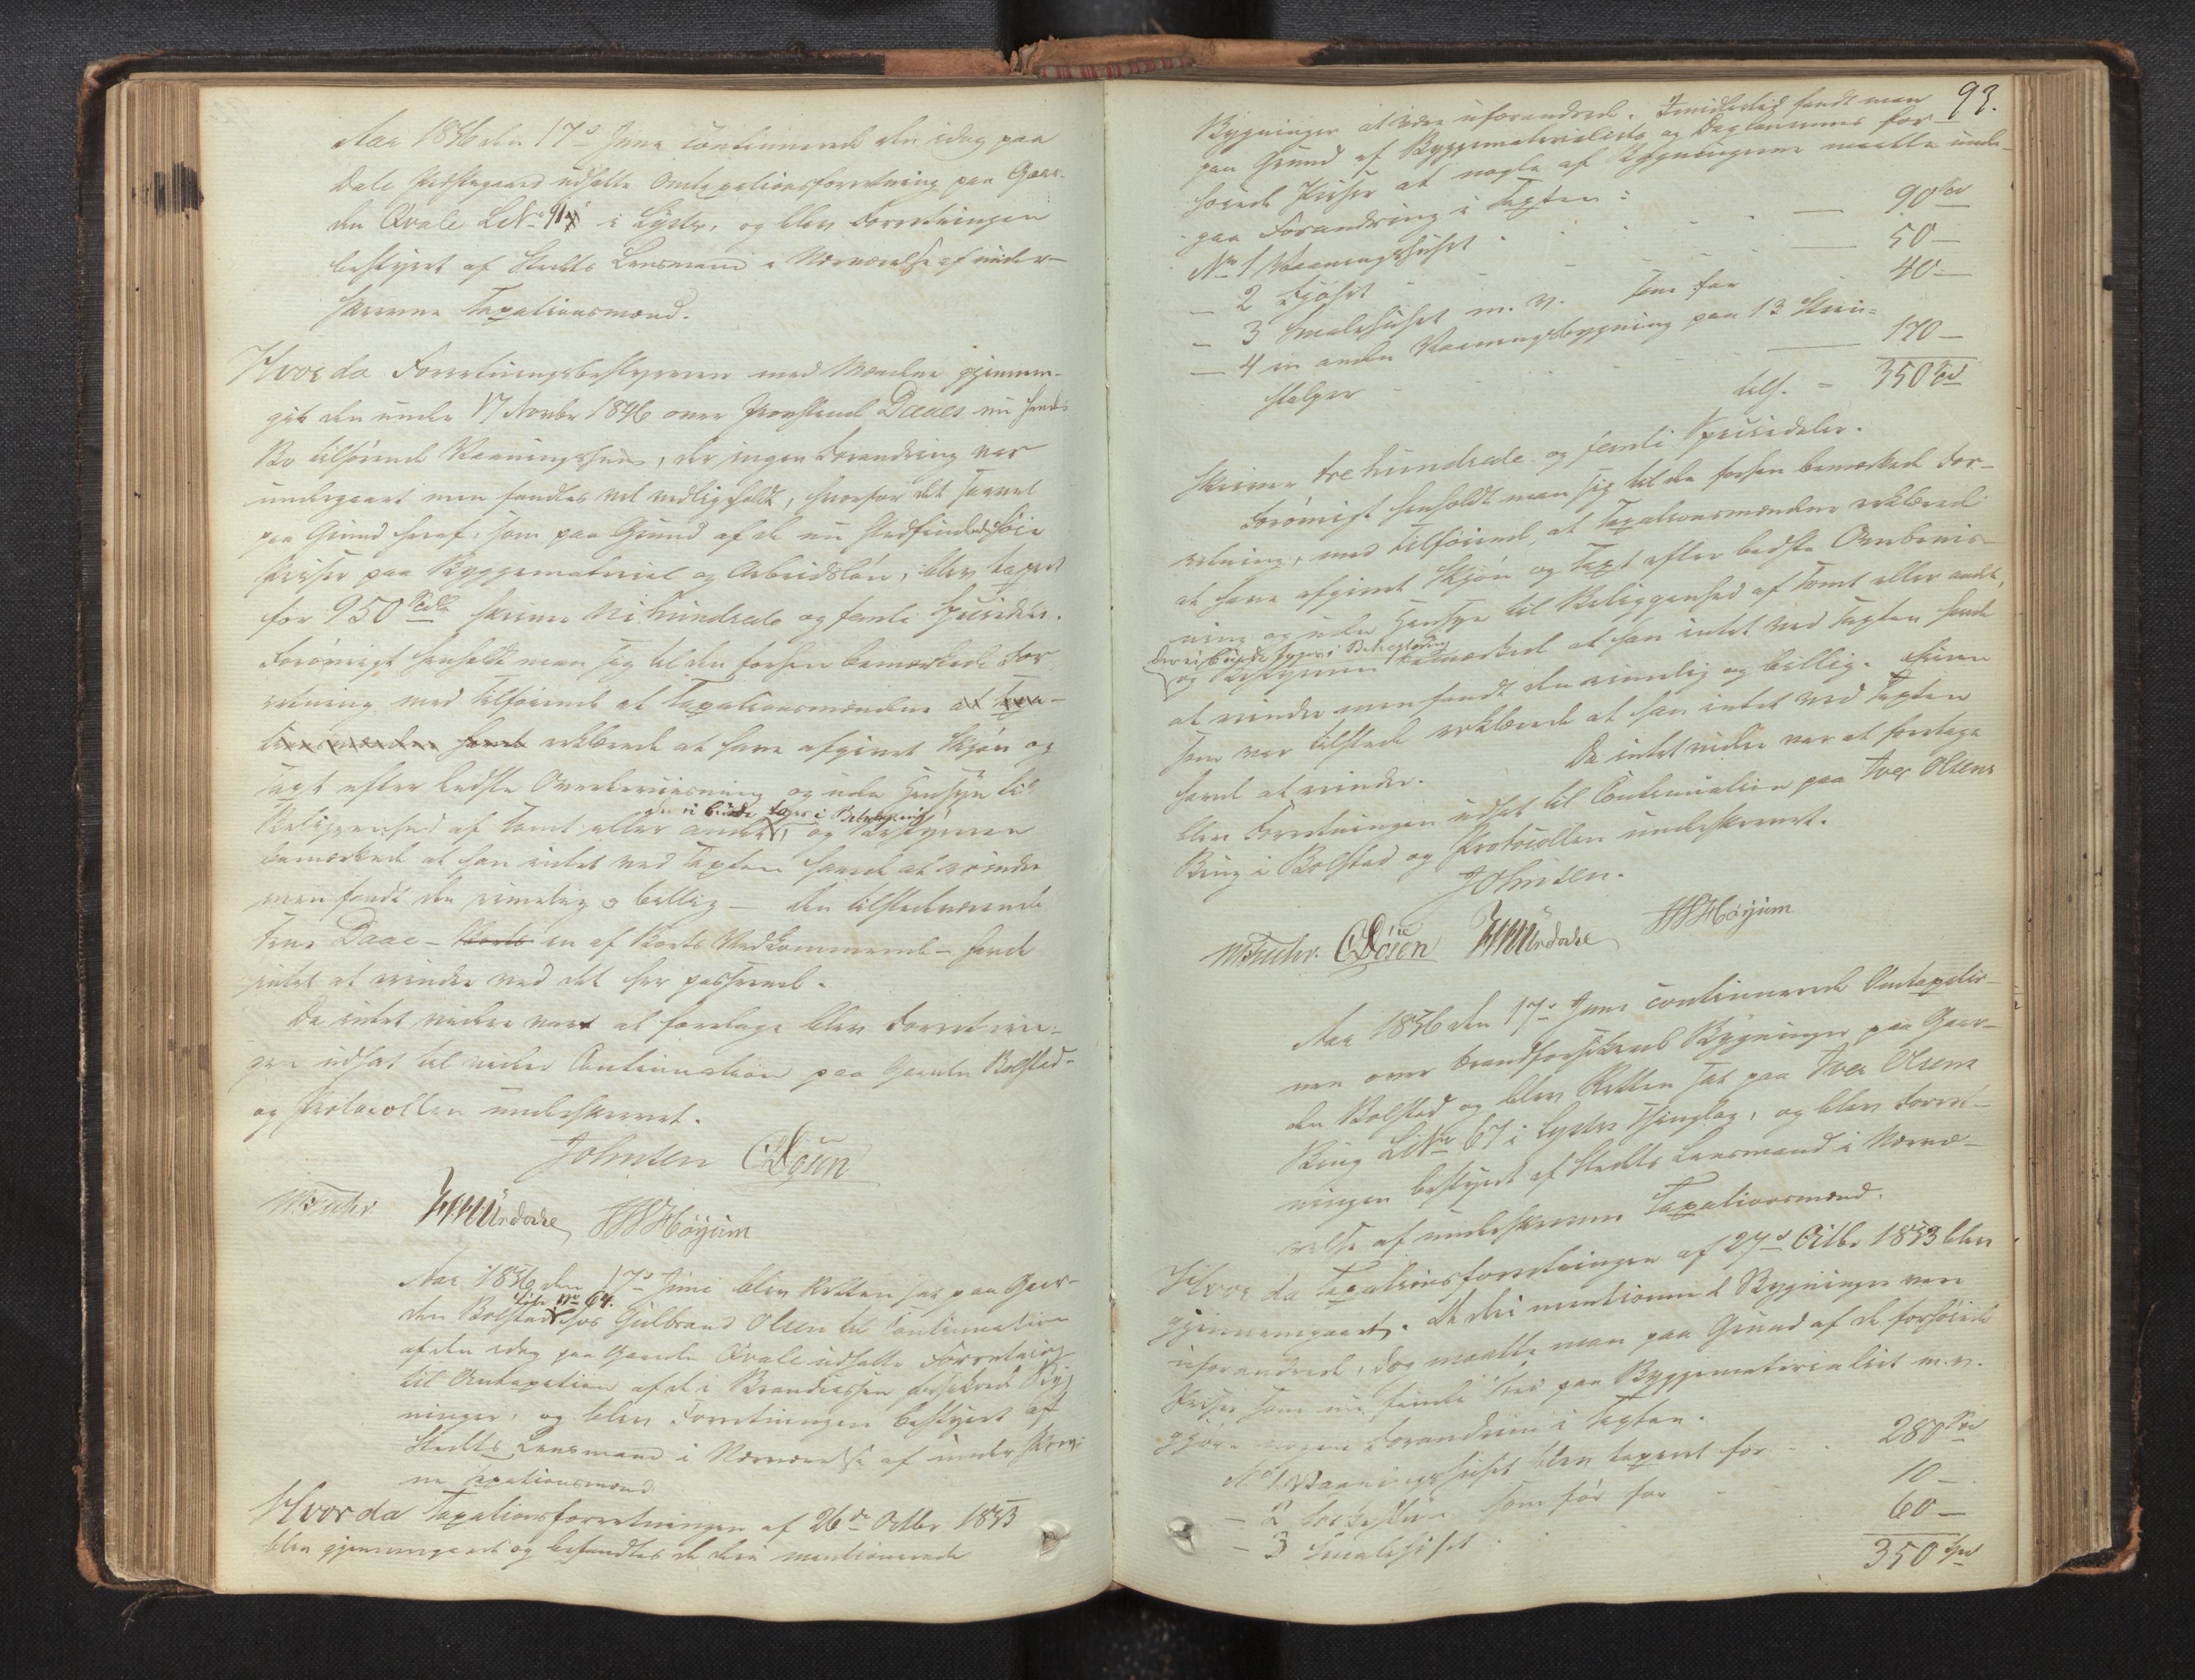 Aar 1856 den 17de Juni continuerede den idag paa
Dale Præstegaard udsatte Omtaxationsforretning paa Gaar-
den Qvale LNo 91 i Lyster, og blev Forretningen
bestyret af Stedets Lensmand i Nærværelse af under-
skrevne Taxationsmænd.
Hvor da Forretningsbestyreren med Mændene gjennem-
gik den under 17 Novbr 1846 over Provstinde Daaes nu hendes
Bo tilhørende Vaaningshus, der ingen Forandring var
undergaaet men fandtes vel vedligeholdt, hvorfor det saavel
paa Grund heraf, som paa Grund af de nu stedfindende høie
Priser paa Byggematerial og Arbeidsløn, blev taxeret
for 950 Spd skriver Ni hundrede og femti Speciedaler.
Forøvrigt henholdt man sig til den forhen bemærkede For-
retning med Tilføiende at Taxationsmændene at Taxa-
tionsmændene havde erklærede at have afgivet Skjøn og
Taxt efter bedste Overbeviisning og uden Hensyn til
Beliggenhed af Tomt eller andet, og Bestyreren
der ei burde tages i Betragtning
bemærkede at han intet ved Taxten havde at erindre
men fandt den rimelig og billig – den tilstedeværende
Frue Daae – Boets en af Boets Vedkommende – havde
intet at erindre ved det her passerede.
Da intet videre var at foretage blev Forretnin-
gen udsat til videre Continuation paa Gaarden Bolstad
og Protocollen underskrevet.
Johnsen CDøsen
MFuhr HMUrdahl HHHøyum
Aar 1856 den 17de Juni blev Retten sat paa Gaar-
Løbe No 64.
den Bolstad hos Gulbrand Olsen til Continuation
af den idag paa Gaarden Qvale udsatte Forretning
til Omtaxation af de i Brandcassen forsikrede Byg-
ninger, og blev Forretningen bestyret af
Stedets Lensmand i Nærværelse af underskrev-
ne Taxationsmænd
Hvor da Taxationsforretningen af 26de Octbr 1853
blev gjennemgaaet og befandtes de deri mentionerede
93.
Bygninger at være uforandrede. Imidlertid fandt man
paa Grund af Byggematerialets og Daglønnens for-
høiede Priser at nogle af Bygningerne maatte under-
gaa Forandring i Taxten:
No 1 Vaaningshuset – 90 Spd
– 2 Fjøset – 50 –
– 3 Smalehuset m. v. som før 40 –
– 4 en anden Vaaningsbygning paa 13 Steen-
stolper – 170 –
tils. – 350 Spd
skriver tre hundrede og femti Speciedaler.
Forøvrigt henholdt man sig til den forhen bemærkede For-
retning, med Tilføiende, at Taxationsmændene erklærede
at have afgivet Skjøn og Taxt efter bedste Overbeviis-
ning og uden Hensyn til Beliggenhed af Tomt eller andet,
der ei burde tages i Betragtning
og Bestyreren bemærkede at han intet ved Taxten havde
at erindre men fandt den rimelig og billig. Eieren
som var tilstede erklærede at han intet ved Taxten
havde at erindre. Da intet videre var at foretage
blev Forretningen udsat til Continuation paa Iver Olsens
Brug i Bolstad og Protocollen underskrevet.
Johnsen.
MFuhr. CDøsen HMUrdahl HHHøyum
Aar 1856 den 17de Juni continuerede Omtaxatio-
nen over brandforsikrede Bygninger paa Gaar-
den Bolstad og blev Retten sat paa Iver Olsens
Brug LNo 67 i Lyster Thinglag, og blev Forret-
ningen bestyret af Stedets Lensmand i Nærvæ-
relse af underskrevne Taxationsmænd.
Hvor da Taxationsforretningen af 27de Octbr 1853 blev
gjennemgaaet. De deri mentionerede Bygninger vare
uforandrede, dog maatte man paa Grund af de forhøiede
Priser som nu finde Sted paa Byggematerialet m. v.
gjøre nogen Forandring i Taxten.
No 1 Vaaningshuset blev taxeret for – 280 Spd
– 2 som før for 10 –
– 3 Smalehuset 60 –
350 Spd